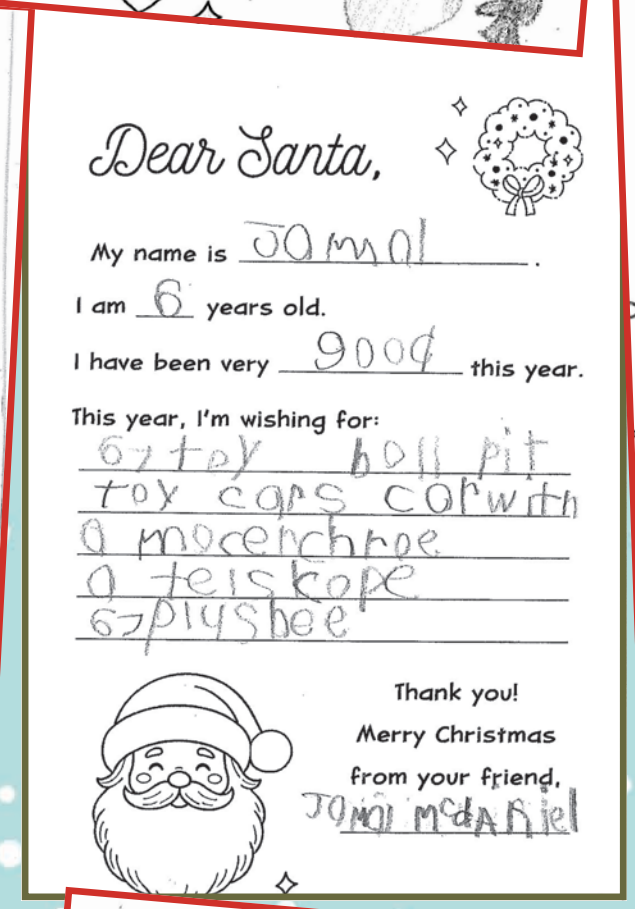 Dear Santa,
My name is Jamal.
I am 6 years old.
I have been very good this year.
This year, I'm wishing for:
67 toy ball pit
toy cars car with
a mocenchroe
a telskope
67 plusbee
Thank you!
Merry Christmas
from your friend,
Jamal mcdAniel